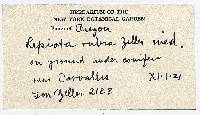 HERBARIUM OF THE
NEW YORK BOTANICAL GARDEN
Oregon
Lepiota rubra Zeller ined.
on ground under conifer
near Corvallis XI-1-21
Zeller 2128